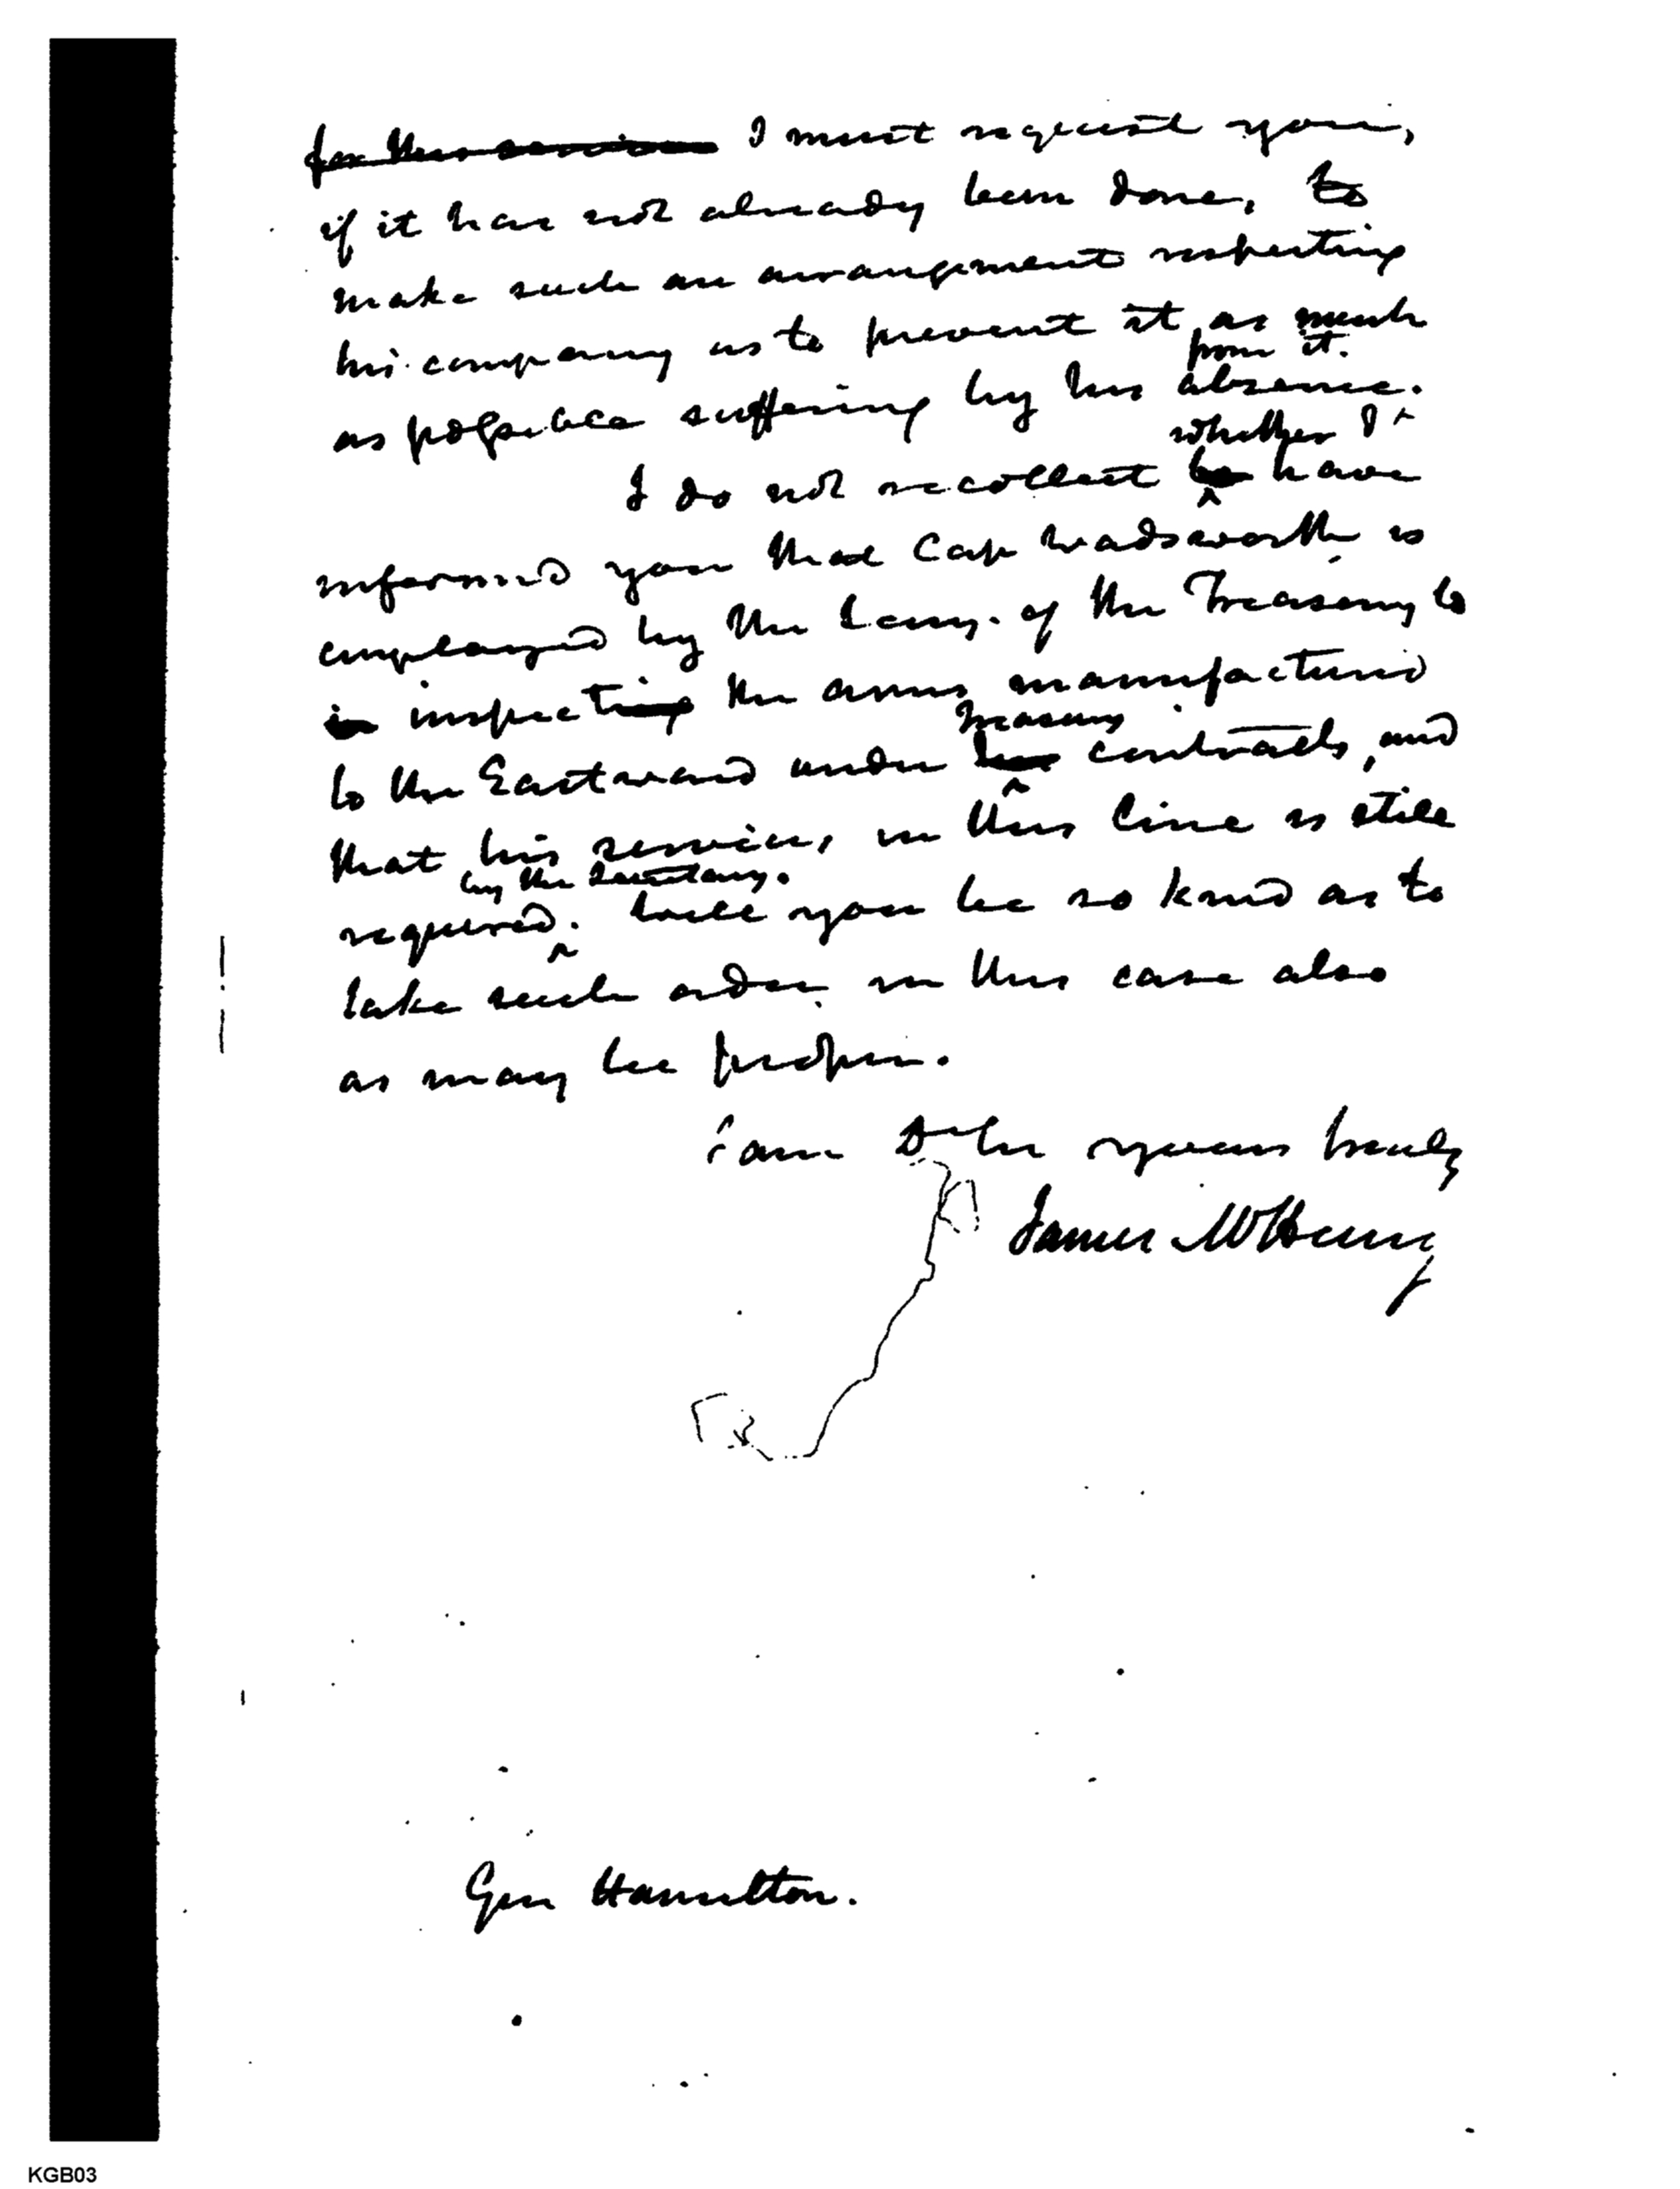 for this service I must request you,
if it has not already been done, to
make such an arrangement respecting
his company as to prevent it, as much
from it.
as possible suffering by his absence.
whether I
I do not recollect to have
informed you that Cap Wadsworth is
employed by the Secy. of the Treasury to
in inspecting the arms manufactured
Treasury
to the Eastward under contracts, and
that his services, in this line is still
by the Secretary.
required. Will you be so kind as to
take such order in this case also
as may be proper.
I am Dr Sir yours truly
James McHenry
Gen Hamilton.
KGB03